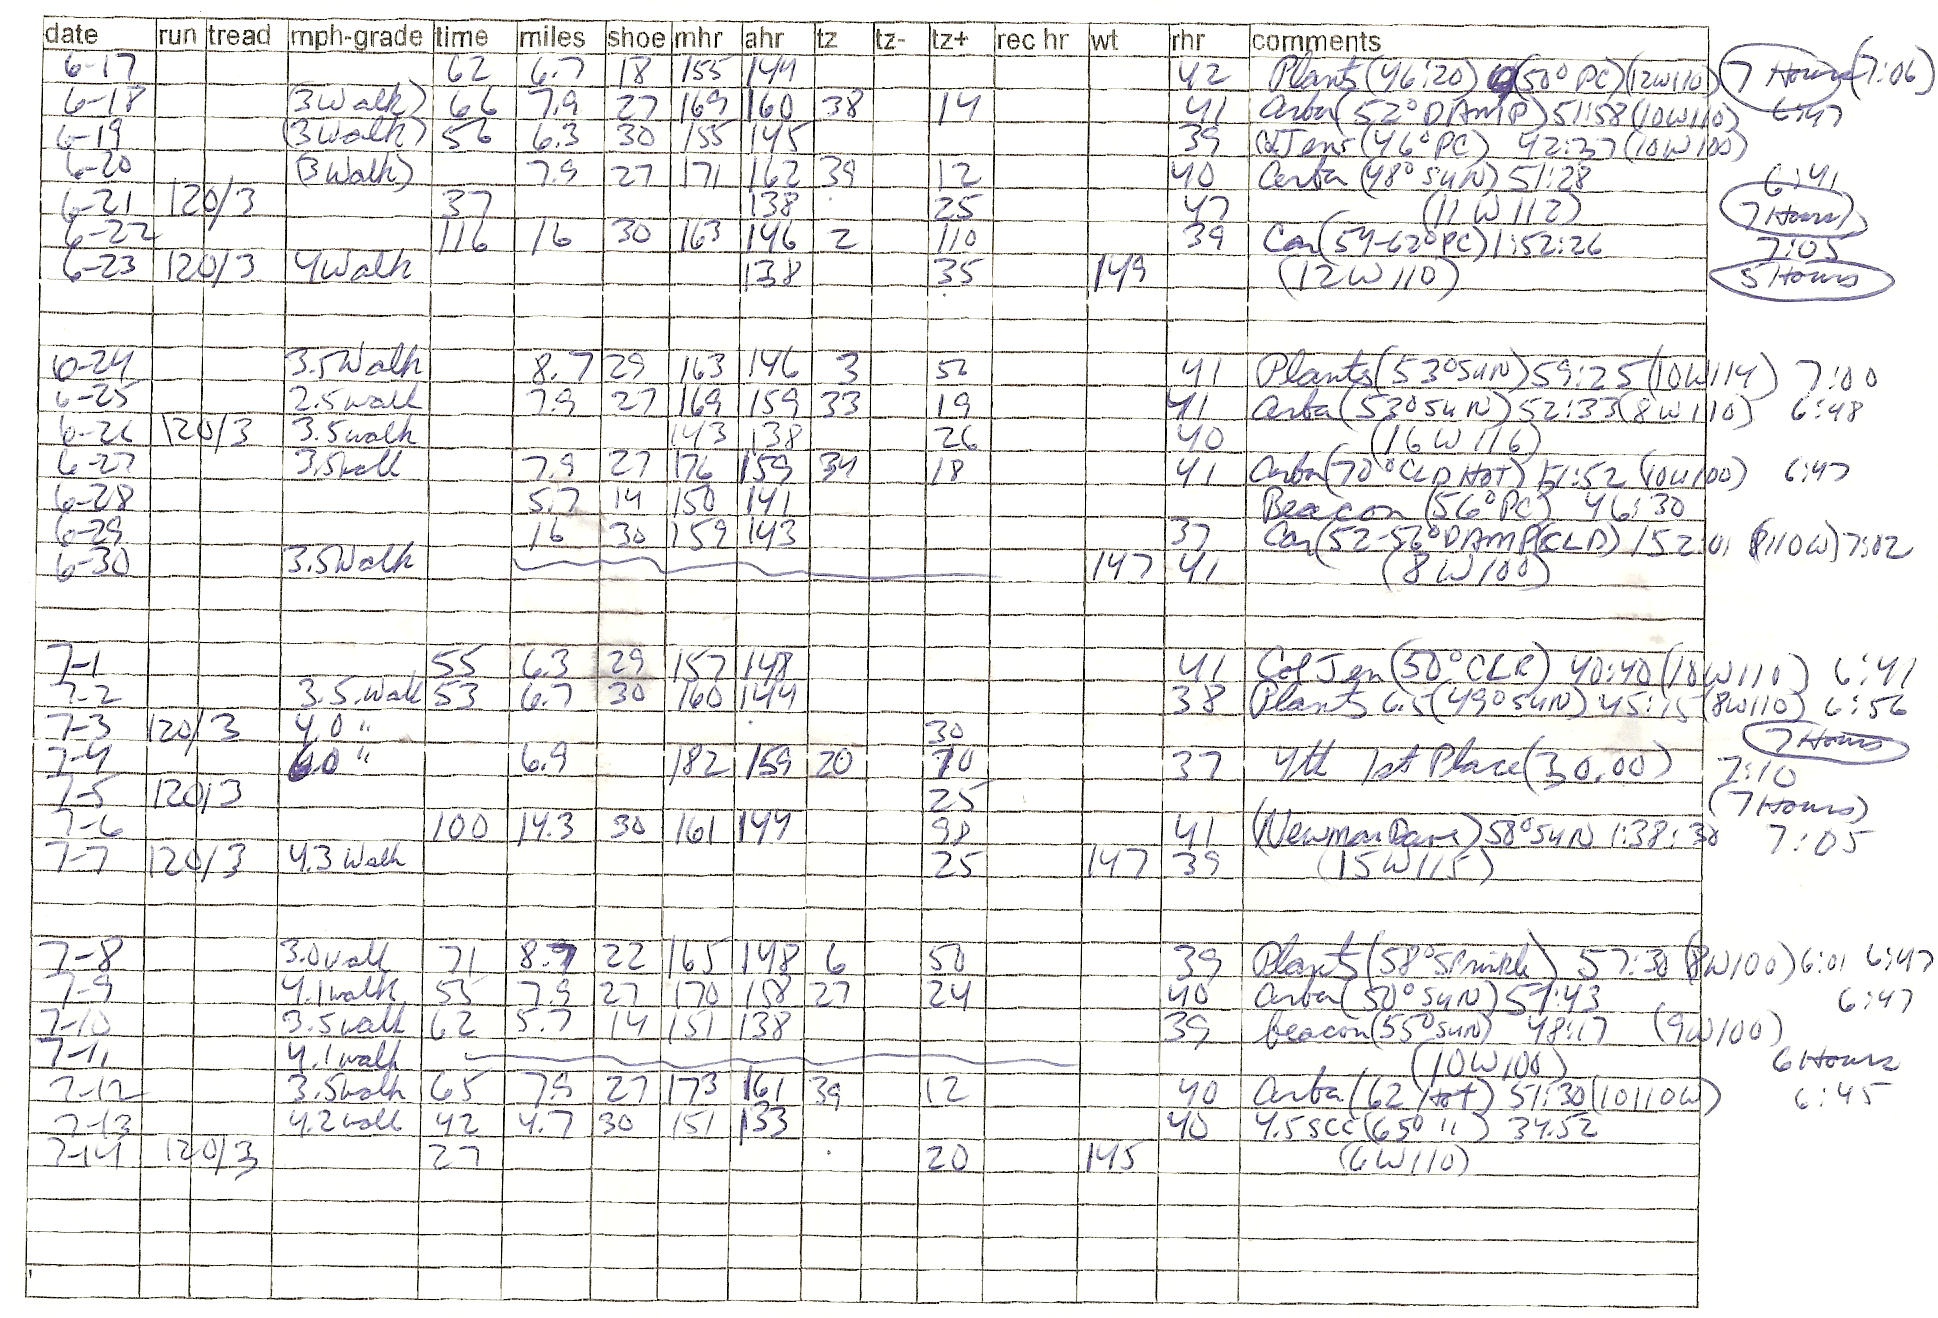 date run tread mph-grade time miles shoe mhr ahr tz tz- tz+ rec hr wt rhr comments
6-17 62 6.7 18 155 144 42 Plants (46:20) (50° PC) (12W110) 7 Hours (7:06)
6-18 (3 Walk) 66 7.9 27 169 160 38 14 41 Arba (52° DAMP) 51:58 (10W110) 6:47
6-19 (3 Walk) 56 6.3 30 155 145 39 ColJens (46° PC) 42:37 (10W100)
6-20 (3 Walk) 7.9 27 171 162 39 12 40 Arba (48° SUN) 51:28 6:41
6-21 120/3 37 138 25 47 (11 W 112) 7 Hours
6-22 116 16 30 163 146 2 110 39 Can (54-62° PC) 1:52:26 7:05
6-23 120/3 4 Walk 138 35 149 (12W110) 5 Hours
6-24 3.5 Walk 8.7 29 163 146 3 52 41 Plants (53° SUN) 59:25 (10W114) 7:00
6-25 2.5 walk 7.9 27 169 159 33 19 41 Arba (53° SUN) 52:33 (8W110) 6:48
6-26 120/3 3.5 walk 143 138 26 40 (16W116)
6-27 3.5 walk 7.9 27 176 159 34 18 41 Arba (70° CLD Hot) 51:52 (10W100) 6:47
6-28 5.7 14 150 141 Beacon (56° PC) 46:30
6-29 16 30 159 143 37 Can (52-56° DAMP CLD) 152:01 (110W) 7:02
6-30 3.5 Walk 147 41 (8W100)
7-1 55 6.3 29 157 148 41 Col Jen (50° CLR) 40:40 (18W110) 6:41
7-2 3.5 walk 53 6.7 30 160 144 38 Plants 6.5 (49° SUN) 45:15 (8W110) 6:56
7-3 120/3 4.0 " 30 7 Hours
7-4 6.0 " 6.9 182 159 20 10 37 4th 1st Place (30,00) 7:10
7-5 120/3 25 (7 Hours)
7-6 100 14.3 30 161 144 98 41 (Newman Dave) 58° SUN 1:38:30 7:05
7-7 120/3 4.3 Walk 25 147 39 (15W115)
7-8 3.0 walk 71 8.7 22 165 148 6 50 39 Plants (58° Sprinkle) 57:30 (8W100) 6:01 6:47
7-9 4.1 walk 55 7.9 27 170 158 27 24 40 Arba (50° SUN) 51:43 6:47
7-10 3.5 walk 62 5.7 14 151 138 39 beacon (55° SUN) 48:17 (9W100)
7-11 4.1 walk (10W100) 6 Hours
7-12 3.5 walk 65 7.9 27 173 161 39 12 40 Arba (62 Hot) 51:30 (10110W) 6:45
7-13 4.2 walk 42 4.7 30 151 133 40 4.5 SCC (65° ") 34.52
7-14 120/3 27 20 145 (6W110)